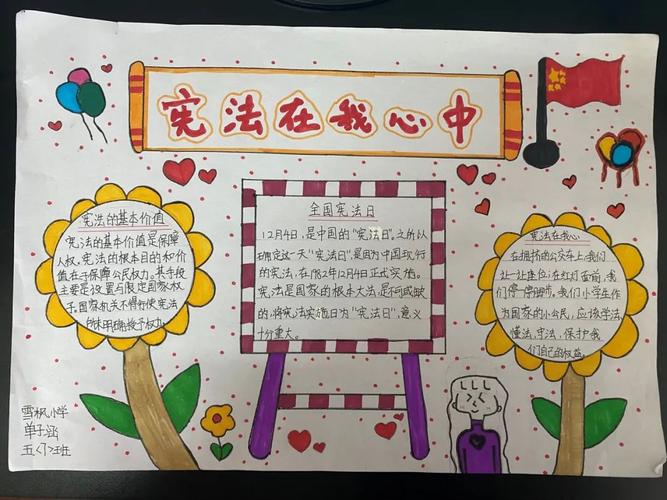 宪法在我心中
宪法的基本价值
宪法的基本价值是保障
人权,宪法的根本目的和价
值在于保障公民权力。其手段
主要是设置与限定国家权
予,国家机关不得行使宪法
所未明确授予权力。
全国宪法日
12月4日,是中国的"宪法日"。之所以
确定这一天"宪法日",是因为中国现行
的宪法,在1982年12月4日正式实施。
宪法是国家的根本大法,是不可或缺
的,将宪法实施日为"宪法日",意义
十分重大。
宪法在我心
在拥挤的公交车上,我们
让一让座位;在红灯面前,我
们停一停脚步。我们小学生作
为国家的小公民,应该学法,
懂法,守法,保护我
们自己的权益。
雪枫小学
单子涵
五〈7〉班